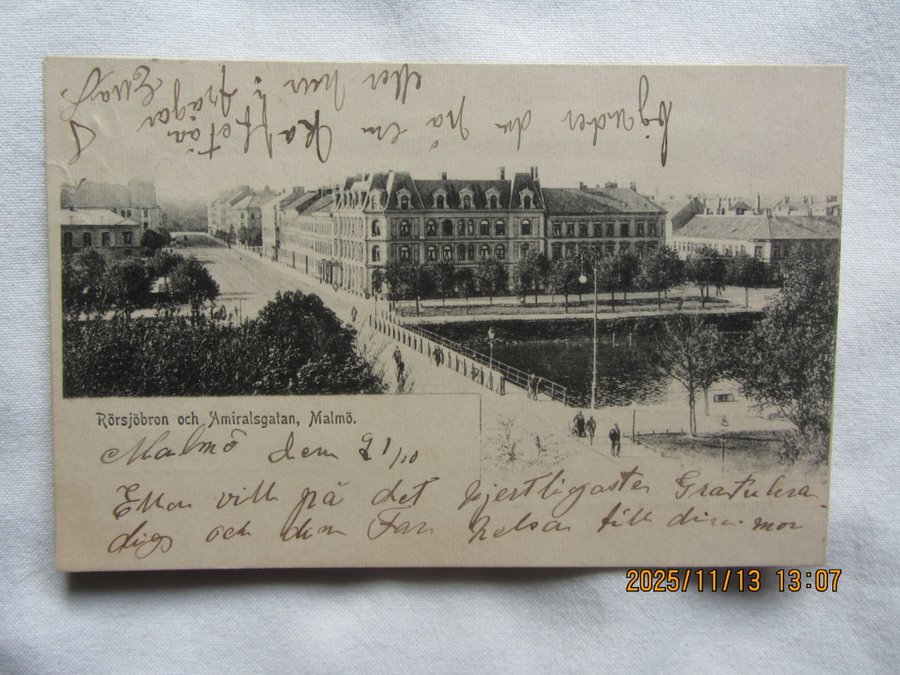 Rörsjöbron och Amiralsgatan, Malmö.
Malmö den 21/10
Ellen vill på det hjertligaste Gratulera
dig och din Far helsar till din mor
du på en
efter hur
frågar
2025/11/13 13:07